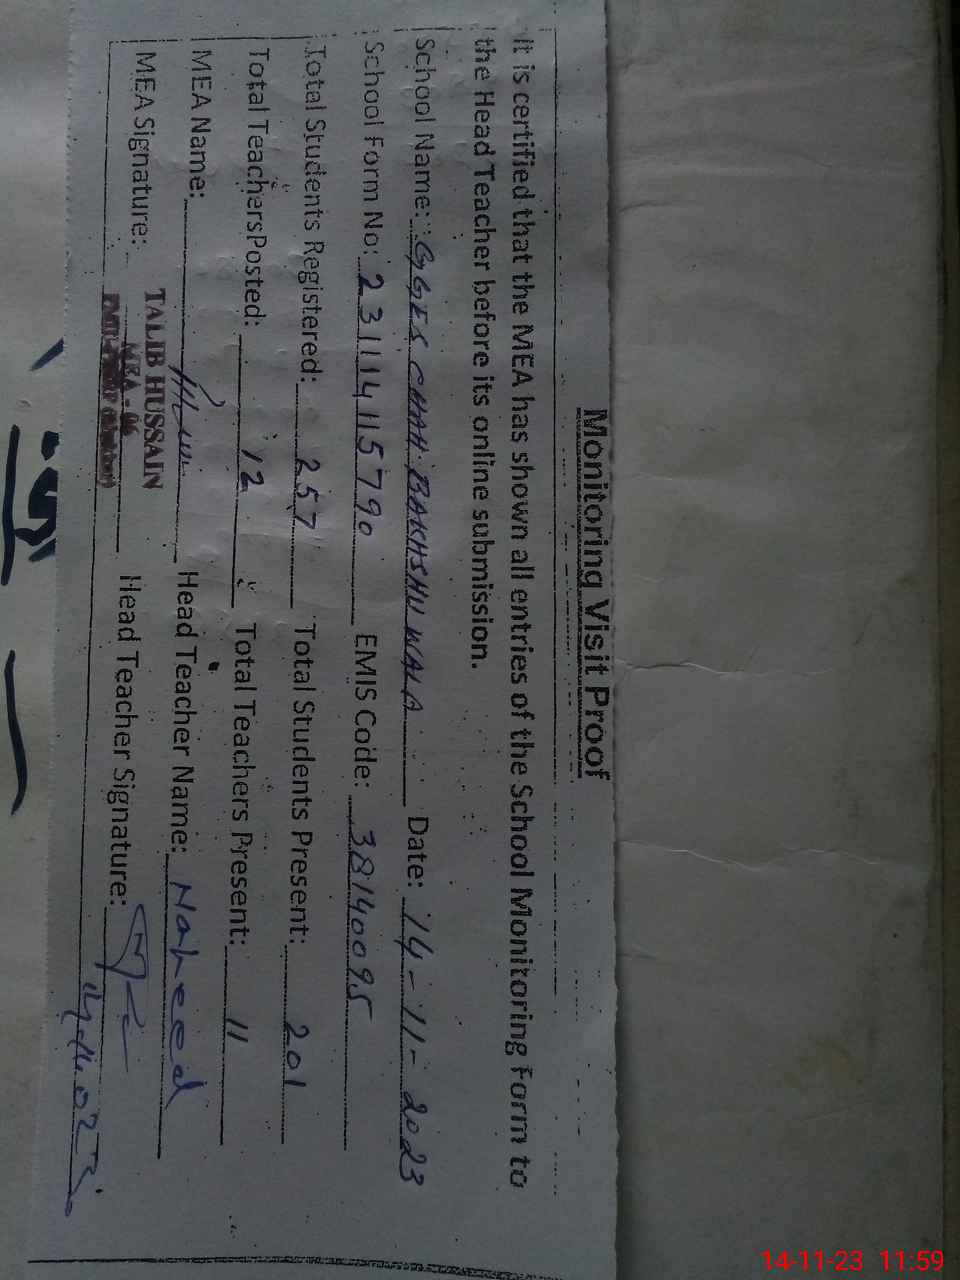 Monitoring Visit Proof
It is certified that the MEA has shown all entries of the School Monitoring Form to
the Head Teacher before its online submission.
School Name: GGES CHAH BAKHSHU WALA Date: 14-11-2023
School Form No: 231114115790 EMIS Code: 38140095
Total Students Registered: 257 Total Students Present: 201
Total TeachersPosted: 12 Total Teachers Present: 11
MEA Name: Head Teacher Name: Naheed
MEA Signature: Head Teacher Signature:
TALIB HUSSAIN
MEA - 06
14-11-23 11:59